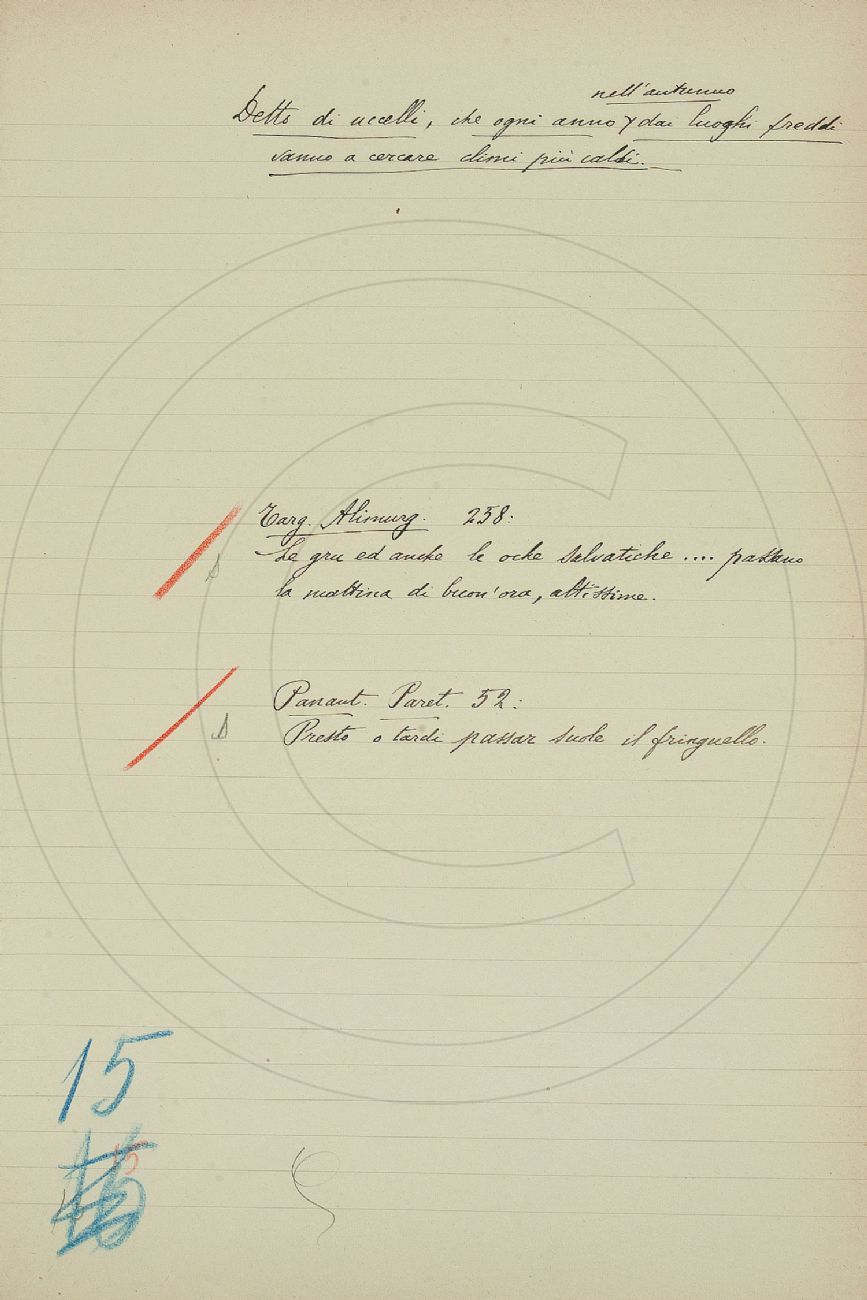 nell'autunno
Detto di uccelli, che ogni anno dai luoghi freddi
vanno a cercare climi più caldi.
Targ. Alimurg. 238:
Le gru ed anche le oche salvatiche .... passano
la mattina di buon'ora, altissime.
Panant. Paret. 52:
Presto o tardi passar suole il fringuello.
15
15